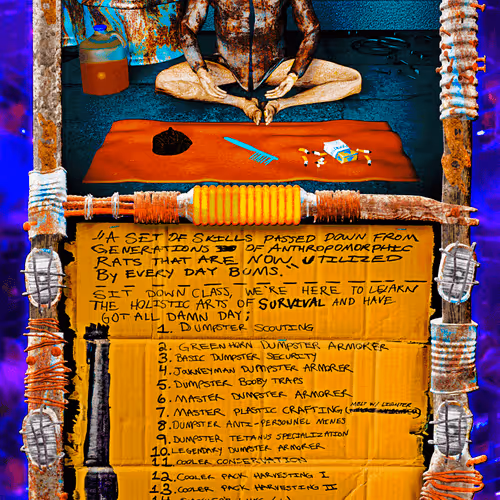 "A SET OF SKILLS PASSED DOWN FROM
GENERATIONS OF ANTHROPOMORPHIC
RATS THAT ARE NOW UTILIZED
BY EVERY DAY BUMS."
SIT DOWN CLASS, WE'RE HERE TO LEARN
THE HOLISTIC ARTS OF SURVIVAL AND HAVE
GOT ALL DAMN DAY;
1. DUMPSTER SCOUTING
2. GREEN HORN DUMPSTER ARMORER
3. BASIC DUMPSTER SECURITY
4. JOURNEYMAN DUMPSTER ARMORER
5. DUMPSTER BOOBY TRAPS
6. MASTER DUMPSTER ARMORER
7. MASTER PLASTIC CRAFTING (MELD W/ LIGHTER
8. DUMPSTER ANTI-PERSONNEL MINES
9. DUMPSTER TETANUS SPECIALIZATION
10. LEGENDARY DUMPSTER ARMORER
11. COOLER CONSERVATION
12. COOLER PACK HARVESTING I
13. COOLER PACK HARVESTING II